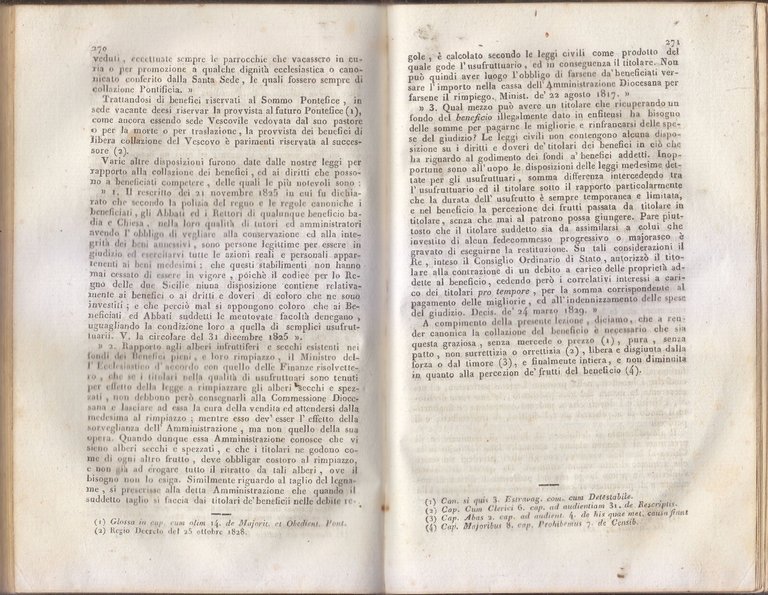 270
veduti, eccettuate sempre le parrocchie che vacassero in cu-
ria o per promozione a qualche dignità ecclesiastica o cano-
nicato conferito dalla Santa Sede, le quali fossero sempre di
collazione Pontificia. »
Trattandosi di benefici riservati al Sommo Pontefice, in
sede vacante deesi riservar la provvista al futuro Pontefice (1),
come ancora essendo sede Vescovile vedovata dal suo pastore
o per la morte o per traslazione, la provvista dei benefici di
libera collazione del Vescovo è parimenti riservata al succes-
sore (2).
Varie altre disposizioni furono date dalle nostre leggi per
rapporto alla collazione dei benefici, ed ai diritti che posso-
no a beneficiati competere, delle quali le più notevoli sono :
» 1. Il rescritto dei 21 novembre 1825 in cui fu dichia-
rato che secondo la polizia del regno e le regole canoniche i
beneficiati, gli Abbati ed i Rettori di qualunque beneficio ba-
dia e Chiesa, nella loro qualità di tutori ed amministratori
avendo l' obbligo di vegliare alla conservazione ed alla inte-
grità dei beni annessivi, sono persone legittime per essere in
giudizio ed esercitarvi tutte le azioni reali e personali appar-
tenenti ai beni medesimi; che questi stabilimenti non hanno
mai cessato di essere in vigore, poichè il codice per lo Re-
gno delle due Sicilie niuna disposizione contiene relativa-
mente ai benefici o ai dritti e doveri di coloro che ne sono
investiti; e che perciò mal si oppongono coloro che ai Be-
neficiati ed Abbati suddetti le mentovate facoltà denegano,
uguagliando la condizione loro a quella di semplici usufrut-
tuarii. V. la circolare del 31 dicembre 1825 ».
» 2. Rapporto agli alberi infruttiferi e secchi esistenti nei
fondi dei Benefici pieni, e loro rimpiazzo, il Ministro del-
l' Ecclesiastico d'accordo con quello delle Finanze risolvette-
ro, che se i titolari nella qualità di usufruttuari sono tenuti
per effetto della legge a rimpiazzare gli alberi secchi e spez-
zati, non debbono però consegnarli alla Commessione Dioce-
sana e lasciare ad essa la cura della vendita ed attendersi dalla
medesima al rimpiazzo; mentre esso dev' esser l' effetto della
sorveglianza dell' Amministrazione, ma non quello della sua
opera. Quando dunque essa Amministrazione conosce che vi
sieno alberi secchi e spezzati, e che i titolari ne godono co-
me di ogni altro frutto, deve obbligar costoro al rimpiazzo,
e non già ad erogare tutto il ritratto da tali alberi, ove il
bisogno non lo esiga. Similmente riguardo al taglio del legna-
me, si prescrisse alla detta Amministrazione che quando il
suddetto taglio si faccia dai titolari de' beneficii nelle debite re-
(1) Glossa in cap. cum olim 14. de Majorit. et Obedient. Pont.
(2) Regio Decreto del 25 ottobre 1828.
271
gole, è calcolato secondo le leggi civili come prodotto del
quale gode l' usufruttuario, ed in conseguenza il titolare. Non
può quindi aver luogo l'obbligo di farsene da' beneficiati ver-
sare l'importo nella cassa dell' Amministrazione Diocesana per
farsene il rimpiego. Minist. de' 22 agosto 1817. »
» 3. Qual mezzo può avere un titolare che ricuperando un
fondo del beneficio illegalmente dato in enfiteusi ha bisogno
delle somme per pagarne le migliorie e rinfrancarsi delle spe-
se del giudizio? Le leggi civili non contengono alcuna dispo-
sizione su i diritti e doveri de' titolari dei benefici in ciò che
ha riguardo al godimento dei fondi a' benefici addetti. Inop-
portune sono all' uopo le disposizioni delle leggi medesime det-
tate per gli usufruttuari, somma differenza intercedendo tra
l' usufruttuario ed il titolare sotto il rapporto particolarmente
che la durata dell' usufrutto è sempre temporanea e limitata,
e nel beneficio la percezione dei frutti passata da titolare in
titolare, senza che mai al patrono possa giungere. Pare piut-
tosto che il titolare suddetto sia da assimilarsi a colui che
investito di alcun fedecommesso progressivo o majorasco è
gravato di eseguirne la restituzione. Su tali considerazioni il
Re, inteso il Consiglio Ordinario di Stato, autorizzò il tito-
lare alla contrazione di un debito a carico delle proprietà ad-
dette al beneficio, cedendo però i correlativi interessi a cari-
co dei titolari pro tempore, per la somma corrispondente al
pagamento delle migliorie, ed all'indennizzamento delle spese
del giudizio. Decis. de' 24 marzo 1829. »
A compimento della presente lezione, diciamo, che a ren-
der canonica la collazione del beneficio è necessario che sia
questa graziosa, senza mercede o prezzo (1), pura, senza
patto, non surrettizia o orrettizia (2), libera e disgiunta dalla
forza o dal timore (3), e finalmente intiera, e non diminuita
in quanto alla percezion de' frutti del beneficio (4).
(1) Can. si quis 3. Extravag. com. cum Detestabile.
(2) Cap. Cum Clerici 6. cap. ad audientiam 31. de Rescriptis.
(3) Cap. Abas 2. cap. ad audient. 4. de his quae met. causa fiunt
(4) Cap. Majoribus 8. cap. Prohibemus 7. de Censib.